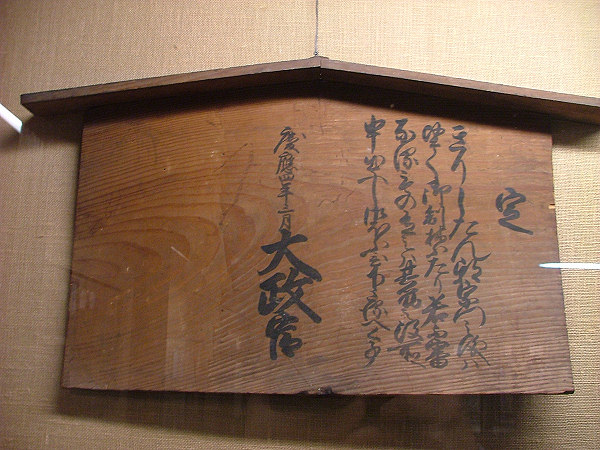 定
きりしたん邪宗門之儀ハ
堅く御制禁たり若不審
なるもの有之ハ其筋之役所
申出へし御
慶應四年三月
大政官